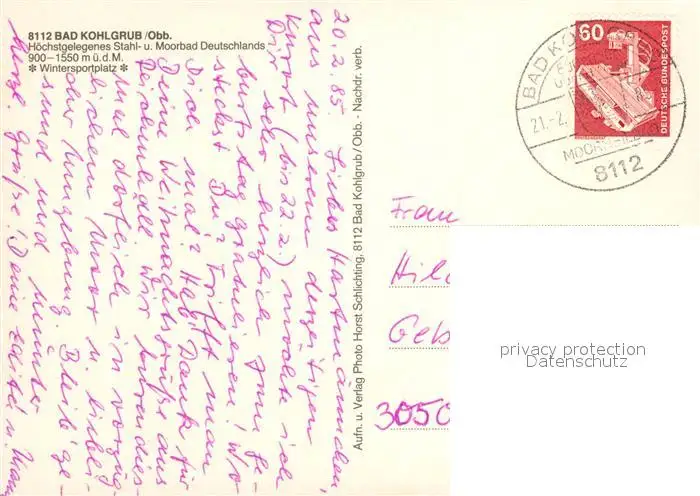 8112 BAD KOHLGRUB /Obb.
Höchstgelegenes Stahl- u. Moorbad Deutschlands
900–1550 m ü.d.M.
✻ Wintersportplatz ✻
20.2.85. Liebes Hartmännchen,
aus unserem derzeitigen
Kurort (bis 22.2.) möchte ich
Dir sehr herzlich zum Ge-
burtstag gratulieren! Wo
steckst Du? Trifft man
Dich mal? Hab Dank für
Deine Weihnachtsgrüße aus
Reichenhall. Wir kuren dies-
mal dortselbst in vorzüg-
lichem Moor u. liebli-
cher Umgebung. Bleib ge-
sund und munter
herzl. Grüße! Deine
Aufn. u. Verlag Photo Horst Schlichting, 8112 Bad Kohlgrub/Obb. - Nachdr. verb.
60
DEUTSCHE BUNDESPOST
BAD KO
21.-2.
8112
Frau
Hil
Geb
3050
privacy protection
Datenschutz